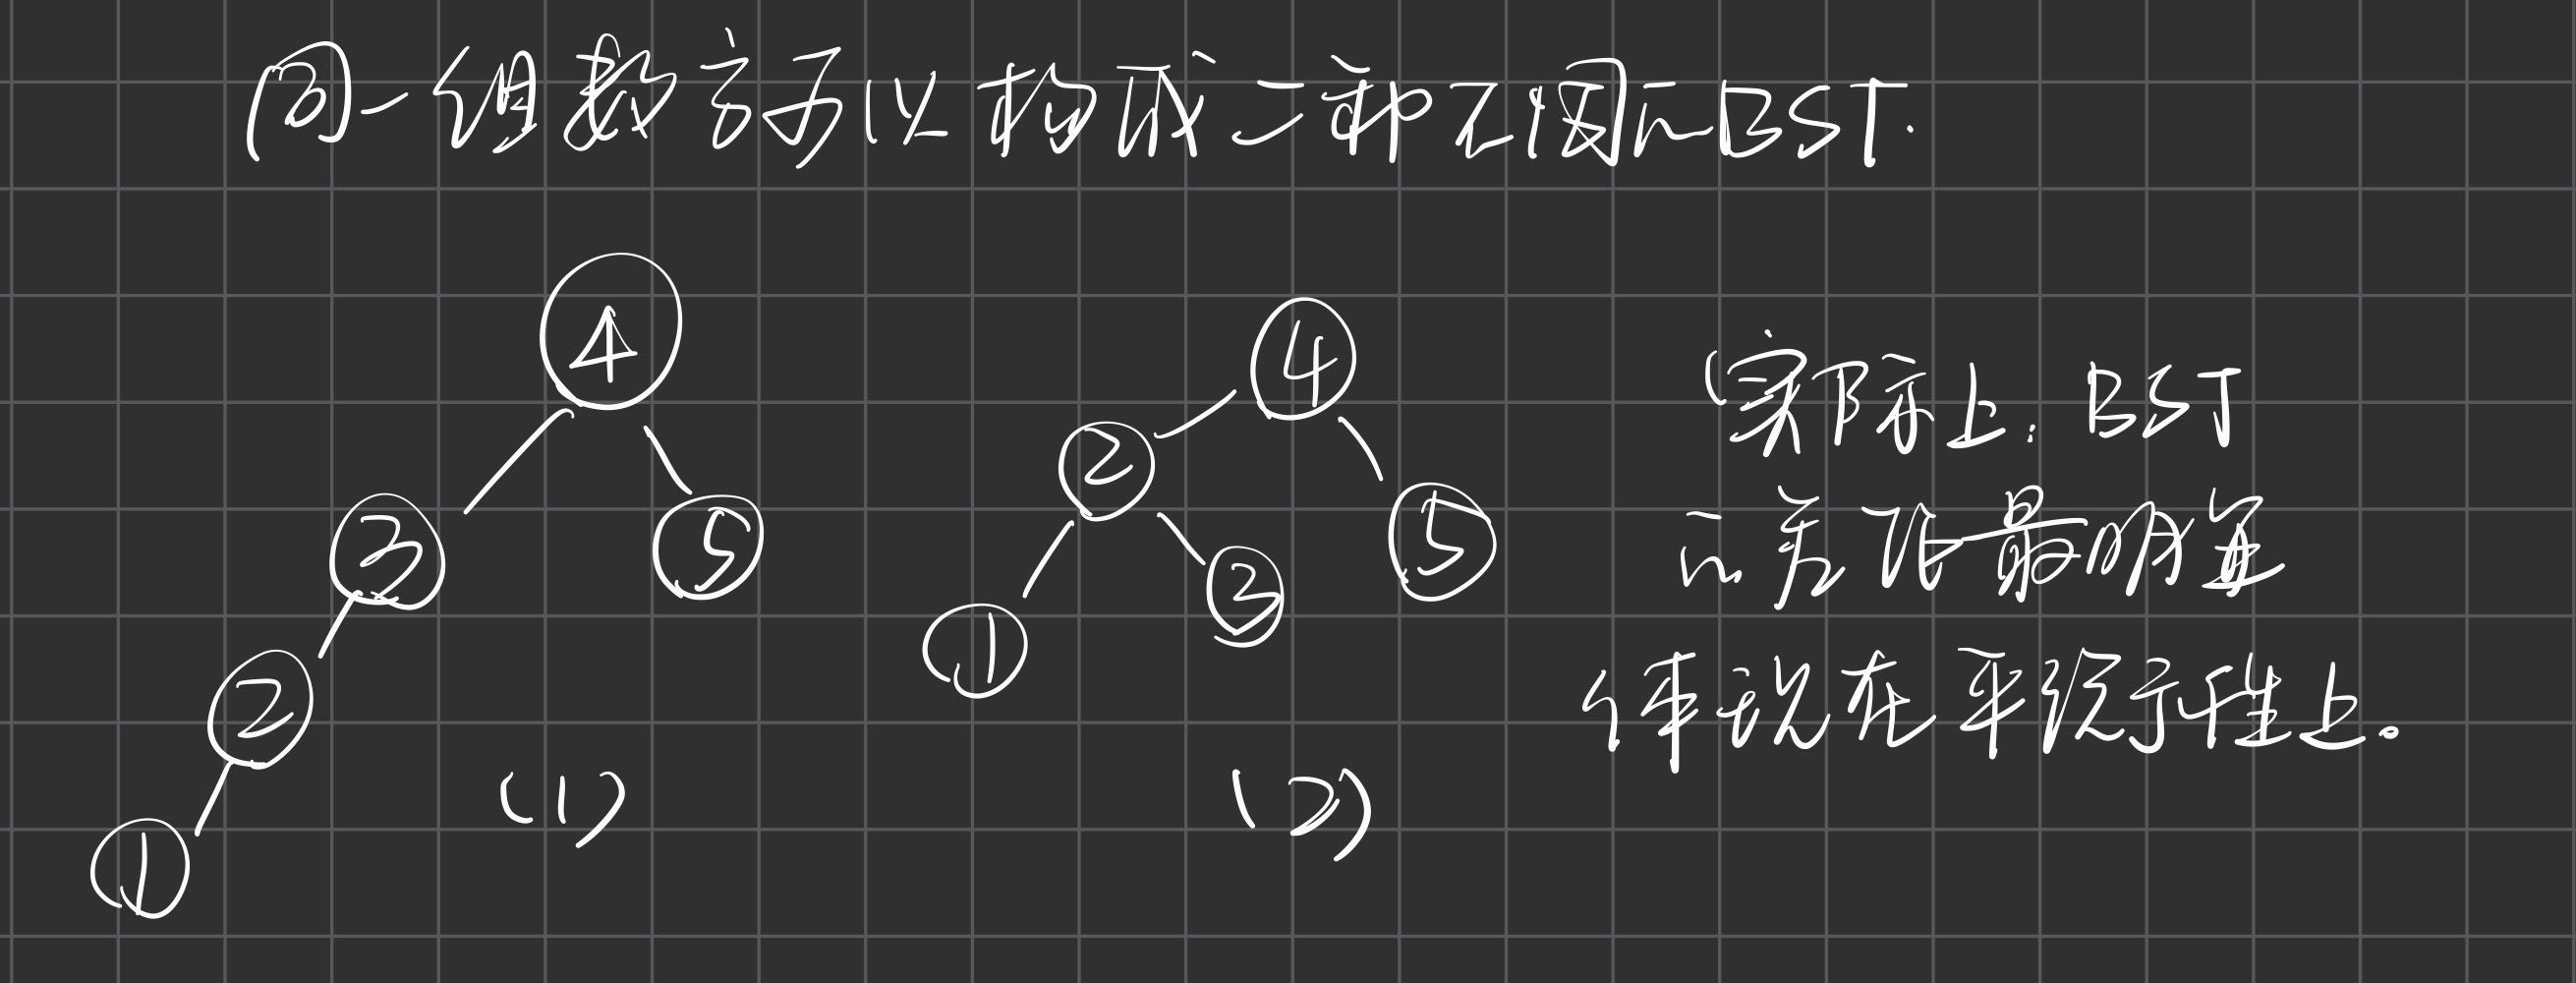 同一组数字可以构成二种不同的BST.
4
4
3
5
2
5
2
1
3
1
(1)
(2)
实际上: BST
的差化最明显
体现在平衡性上。